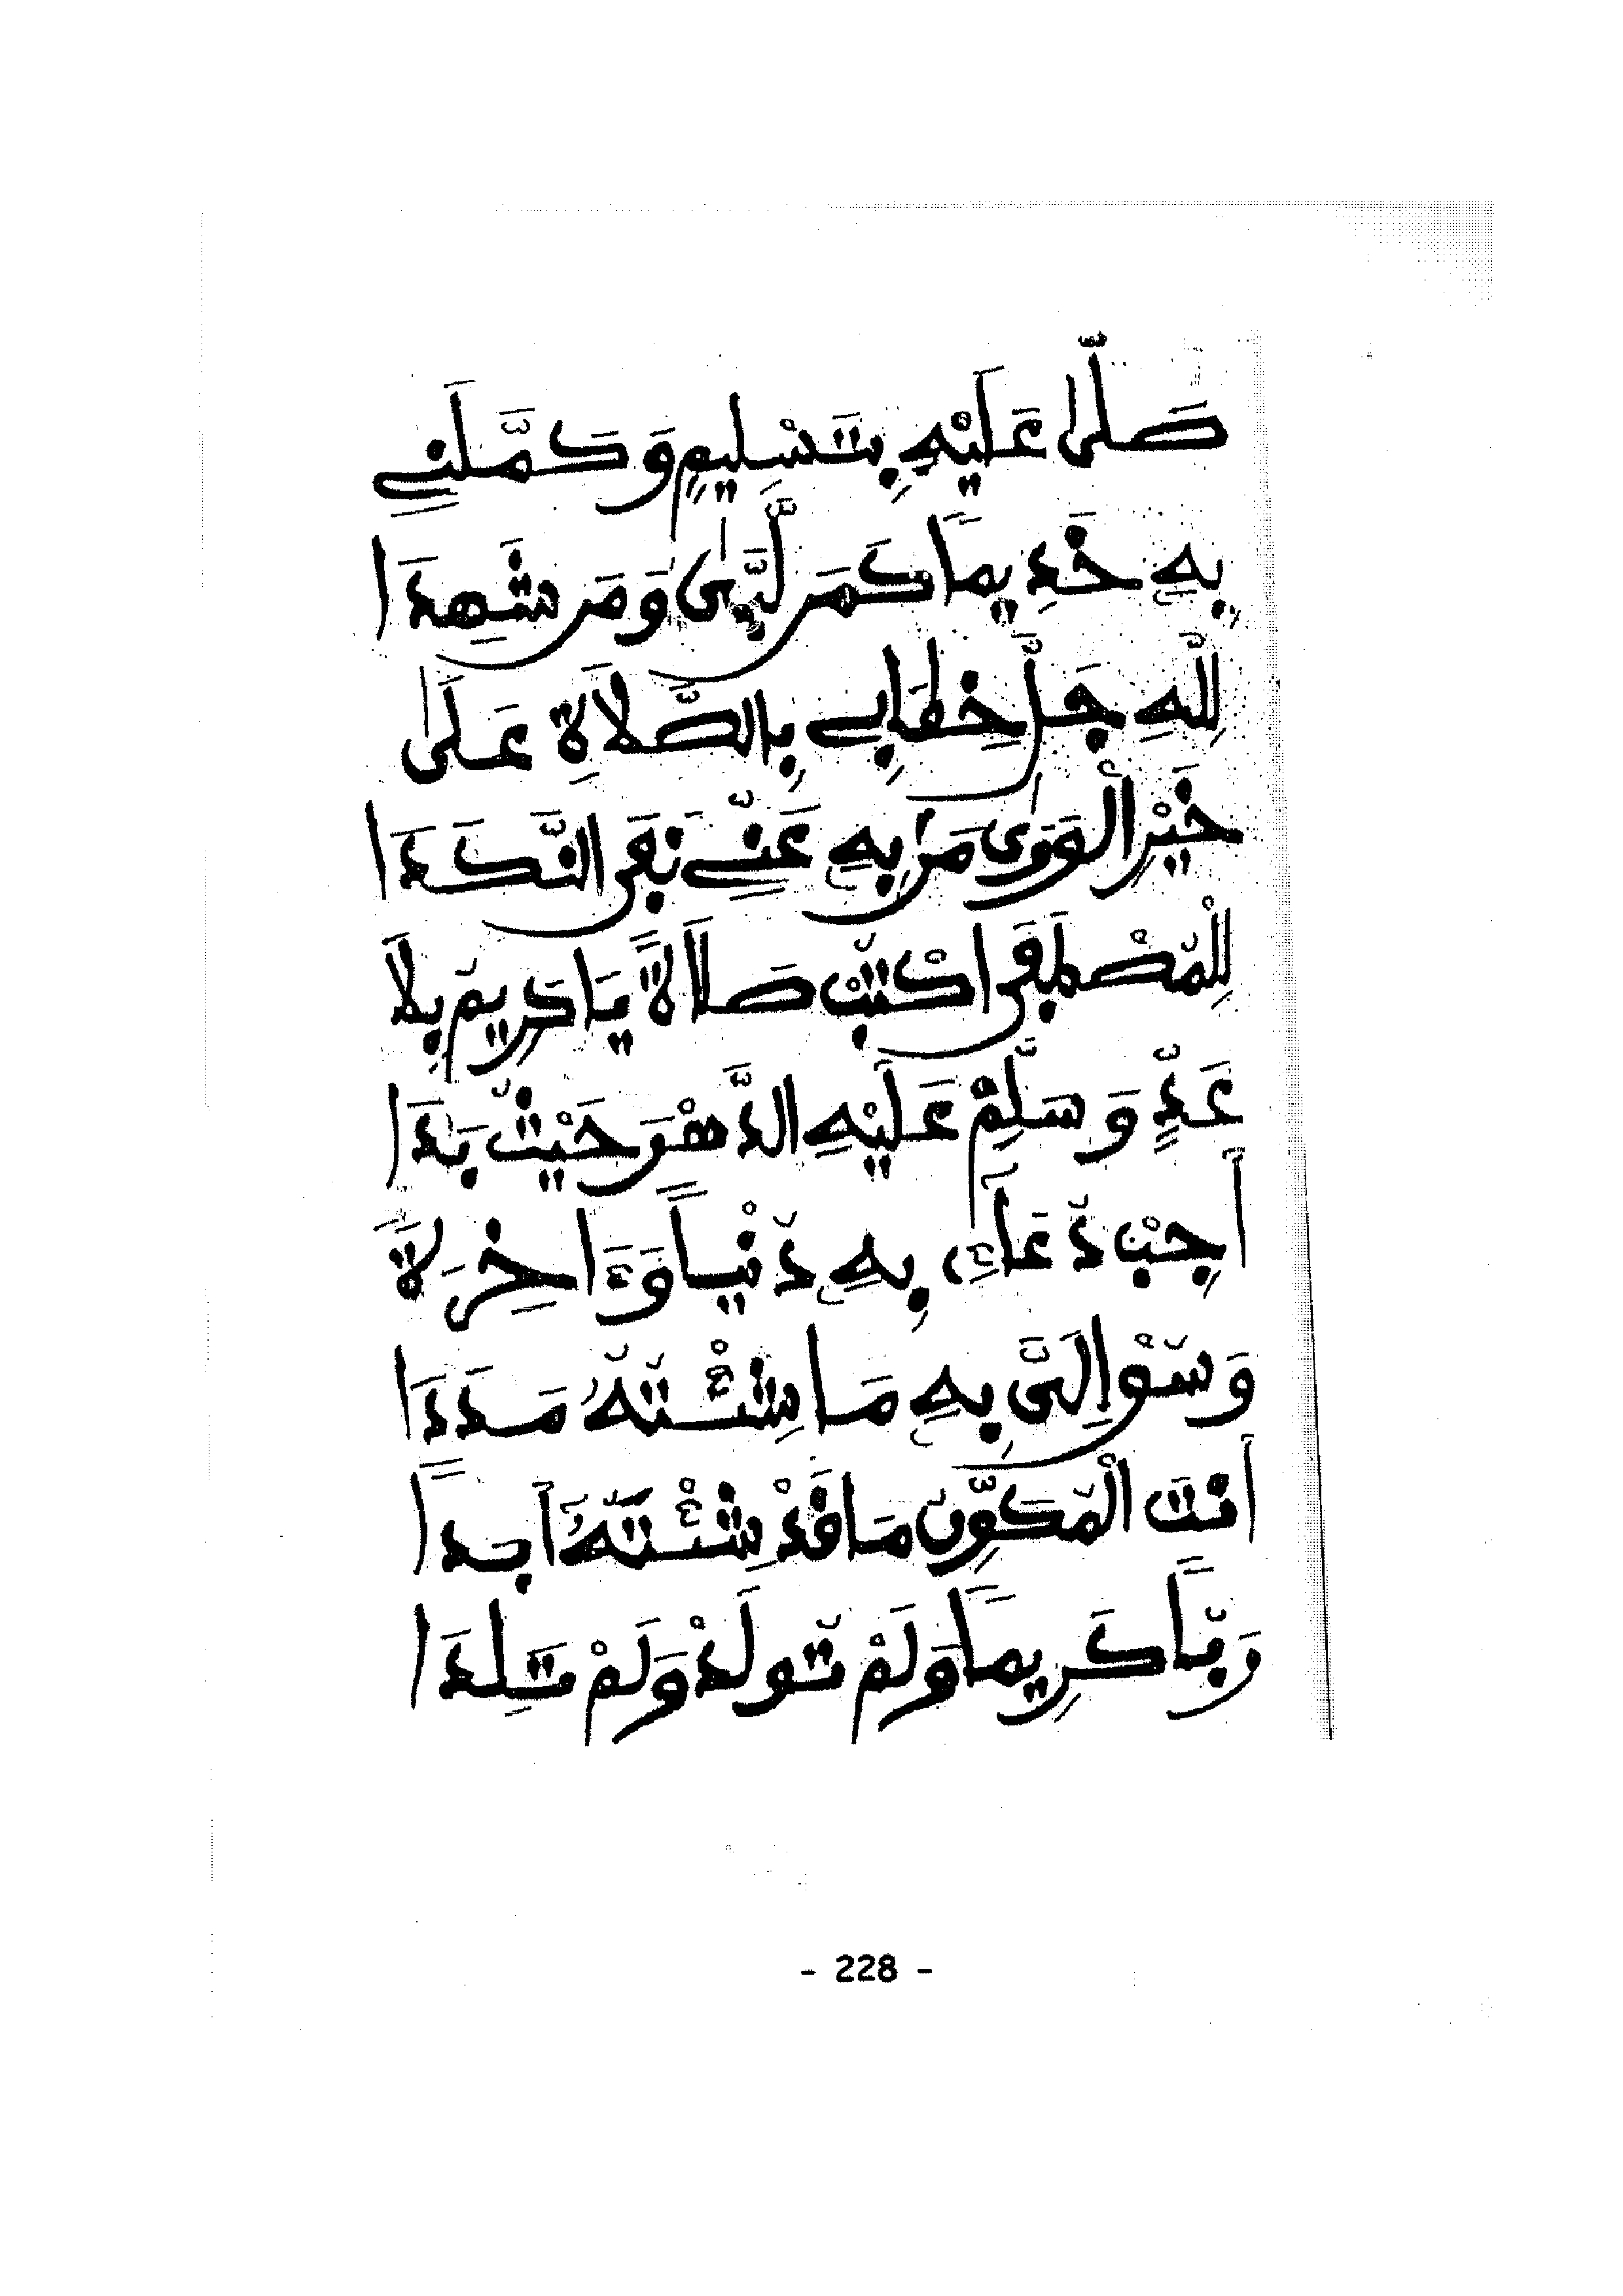 صَلَّىٰ عَلَيْهِ بِتَسْلِيمٍ وَكَمَّلَنِے
بِهِ خَدِيمًا كَمَن لَّبَّىٰ وَمَن شَهِدَا
لِلّهِ جَلَّ خِطَابِے بِالصَّلَاةِ عَلَىٰ
خَيْرِ الْوَرَىٰ مَن بِهِ عَنِّے نَفَى النَّكَدَا
لِلْمُصْطَفَى اكْتُبْ صَلَاةً يَا كَرِيمُ بِلَا
عَدٍّ وَسَلِّمْ عَلَيْهِ الدَّهْرَ حَيْثُ بَدَا
أَجِبْ دُعَاءِ بِهِ دُنْيًا وَءَاخِرَةً
وَسُقْ إِلَيَّ بِهِ مَا شِئْتُهُ مَدَدَا
أَنتَ الْمُكَوِّنُ مَا قَدْ شِئْتَهُ أَبَدًا
رَبًّا كَرِيمًا وَلَمْ تُولَدْ وَلَمْ تَلِدَا
- 228 -